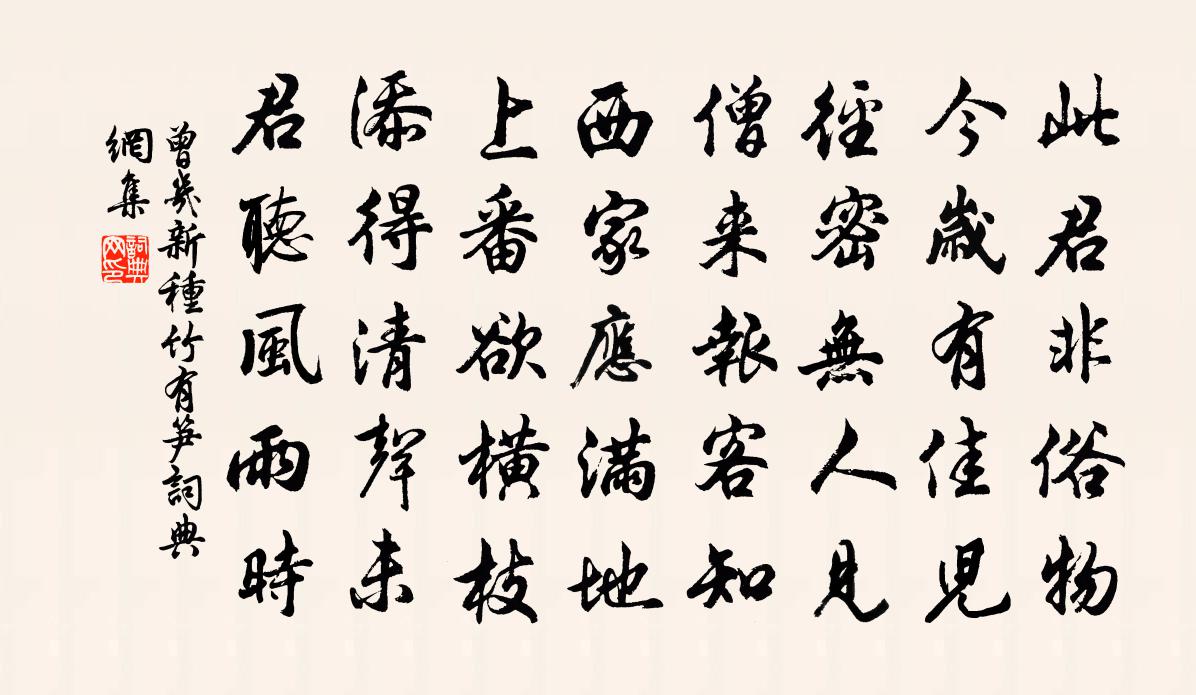 此君非俗物
今歲有佳兒
徑密無人見
僧来報客知
西家應滿地
上番欲橫枝
添得清聲未
君聽風雨時
曾幾新種竹有笋詞典
網集
詞典
网印